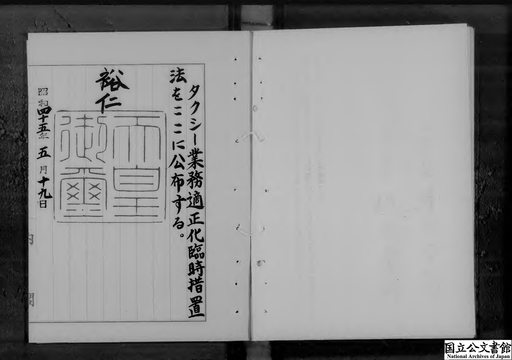 タクシー業務適正化臨時措置
法をここに公布する。
裕仁
天皇
御璽
昭和四十五年五月十九日
内閣
国立公文書館
National Archives of Japan